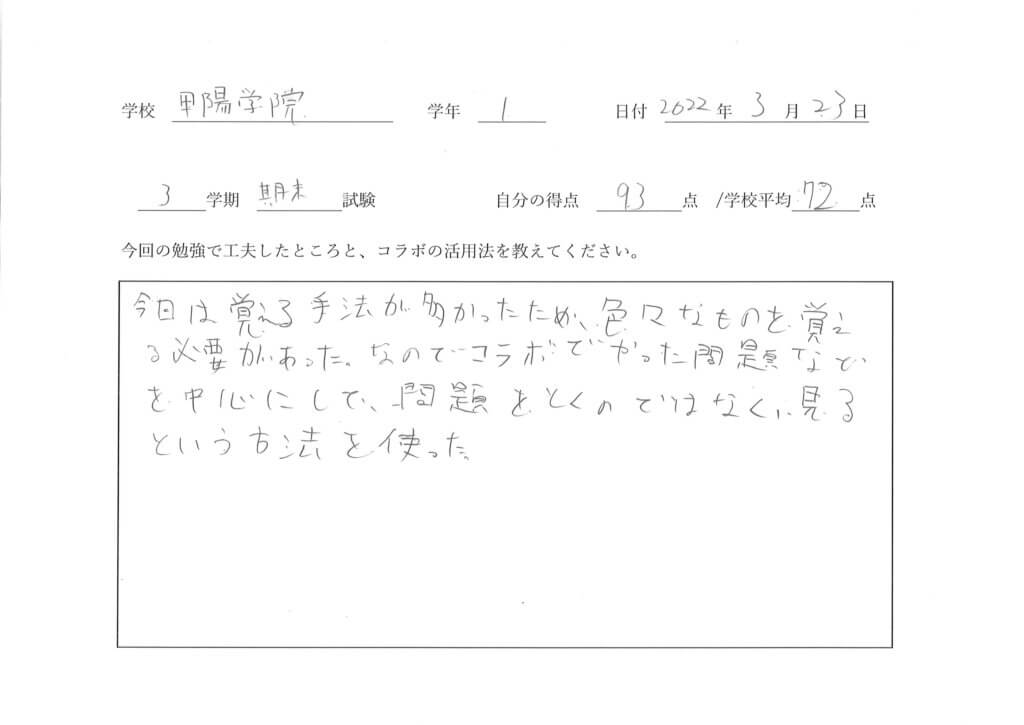 学校 甲陽学院 学年 1 日付 2022 年 3 月 23 日
3 学期 期末 試験 自分の得点 93 点 /学校平均 72 点
今回の勉強で工夫したところと、コラボの活用法を教えてください。
今回は覚える手法が多かったため、色々なものを覚え
る必要があった。なのでコラボでやった問題など
を中心にして、問題をとくのではなく、見る
という方法を使った。